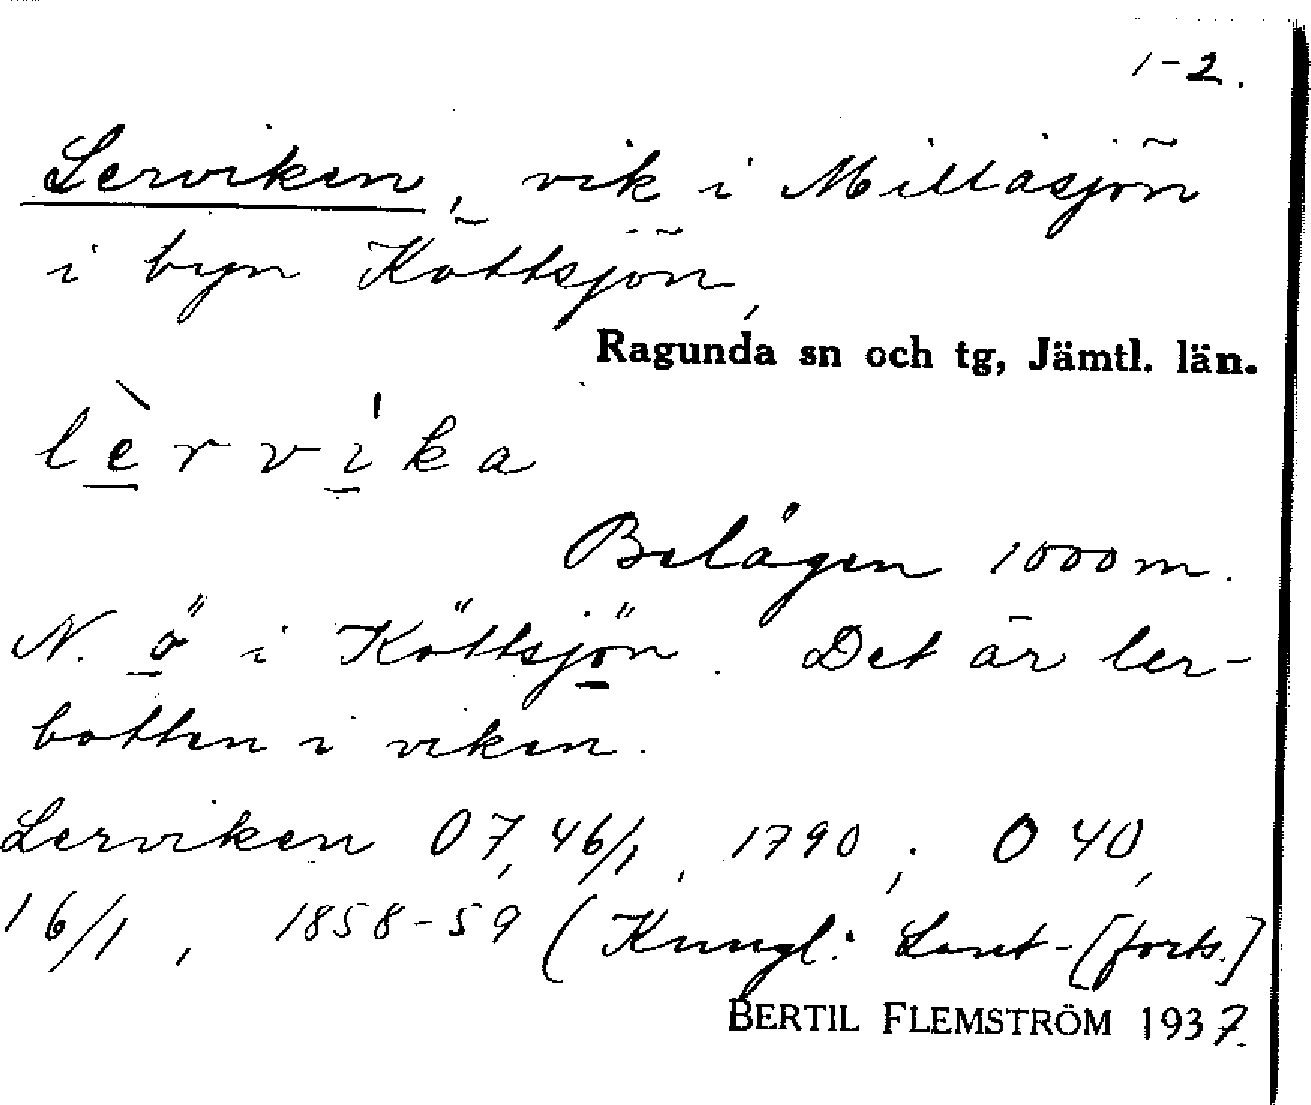 1-2.
Lerviken, vik i Millåsjön
i byn Köttsjön,
Ragunda sn och tg, Jämtl. län.
lèrvíka
Belägen 1000 m.
N. ö i Köttsjön. Det är ler-
botten i viken.
Lerviken O 7, 46/1, 1790; O 40,
16/1, 1858-59 (Kungl. Lant-[forts.]
BERTIL FLEMSTRÖM 1937.